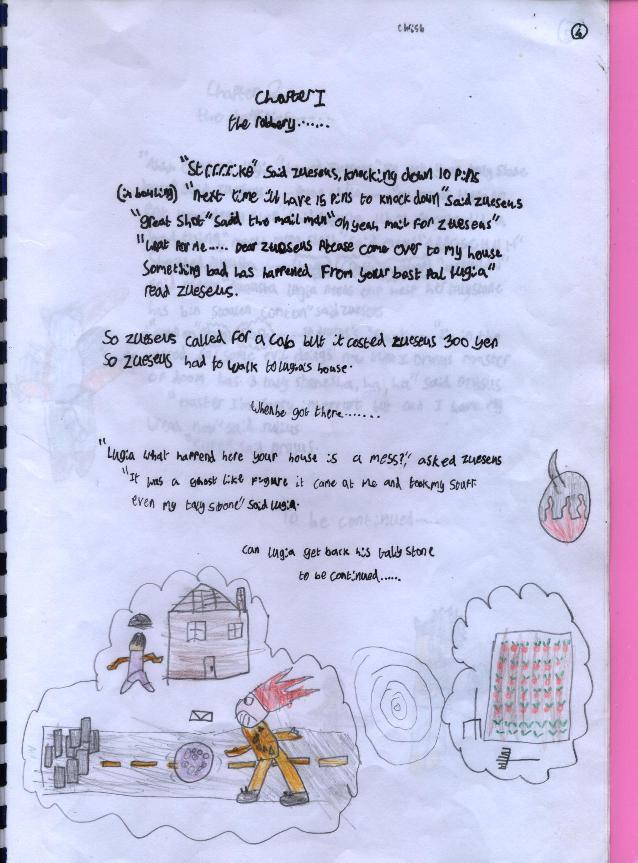 chrish
4
Chapter I
the robbery......
"Strrrrike" Said zueseus, knocking down 10 Pins
(in bowling) "next time i'll have 15 Pins to knock down" said zueseus
"great shot" said the mail man "oh yeah, mail for zueseus"
"Wait for me..... Dear zueseus Please come over to my house
Something bad has happened From your best Pal lugia"
read zueseus.
So zueseus called for a Cab but it costed zueseus 300 yen
So zueseus had to walk to lugia's house.
When he got there.......
"Lugia what happend here your house is a mess?" asked zueseus
"It was a ghost like figure it came at me and took my stuff
even my taly stone" said lugia.
Can lugia get back his taly stone
to be continued.....